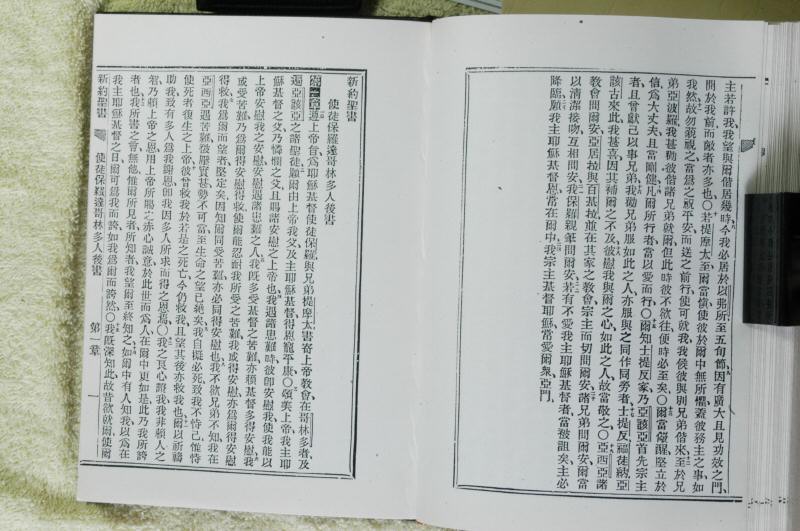 主若許我、我望與爾偕居幾時、今我必居於以弗所至五旬節、因有廣大且見功效之門、
開於我前、而敵者亦多也、○若提摩太至爾、當愼使彼於爾中無所懼、蓋彼務主之事、如
我然、故勿藐視之、當爲之祝平安而送之前行、使可就我、我俟彼與別兄弟偕來、至於兄
弟亞波羅、我甚勸彼偕諸兄弟就爾、但此時彼不欲往、便時必至矣、○爾當儆醒、堅立於
信、爲大丈夫、且當剛健、凡爾所行者、當以愛而行、○爾知士提反家、乃亞該亞首先宗主
者、且曾獻己以事兄弟、我勸兄弟服如此之人、亦服與之同作同勞者、士提反福徒納亞
該古來此、我甚喜、因其補爾之不及、彼慰我與爾之心、如此之人、故當敬之、○亞西亞諸
教會問爾安、亞居拉與百基拉、並在其家之教會、宗主而切問爾安、諸兄弟問爾安、爾當
以清潔接吻互相問安、我保羅親筆問爾安、若有不愛我主耶穌基督者、當被詛矣、主必
降臨、願我主耶穌基督恩、常在爾中、我宗主基督耶穌、常愛爾衆、亞門、
新約聖書
使徒保羅達哥林多人後書
第一章遵上帝旨爲耶穌基督使徒保羅、與兄弟提摩太、書寄上帝敎會、在哥林多者、及
遍亞該亞之諸聖徒、願爾由上帝我父、及主耶穌基督、得恩寵平康、○頌美上帝我主耶
穌基督之父、乃憐憫之父、且賜諸安慰之上帝也、我遇諸患難時、彼卽安慰我、使我能以
上帝安慰我之安慰、安慰遇諸患難之人、我旣多受基督之苦難、亦賴基督多得安慰、我
或受苦難、乃爲爾得安慰得救、使爾能忍耐我所受之苦難、我或得安慰、亦爲爾得安慰
得救、我爲爾而望者堅定矣、因知爾同受苦難、亦必同得安慰也、我不欲兄弟不知我在
亞西亞遇苦難、被壓實甚、勢不可當、至生命之望已絕矣、我自擬必死、致我不恃己、惟恃
使死者復生之上帝、彼曾救我於若是之死亡、今仍救我、且望其後亦救我也、爾以祈禱
助我、致有多人爲我謝恩、卽我因多人所求而得之恩焉、○我之良心證我、我非賴人之
智、乃賴上帝之恩、用上帝所賜之赤心誠意於此世而爲人、在爾中更如是、此乃我所誇
者也、我所書之言無他、惟爾所見者所知者、我望爾至終知之、如爾中有人知我以爲在
我主耶穌基督之日、爾可爲我而誇、如我爲爾而誇然、○我旣深知此、故昔欲就爾、使爾
新約聖書 使徒保羅達哥林多人後書 第一章 一